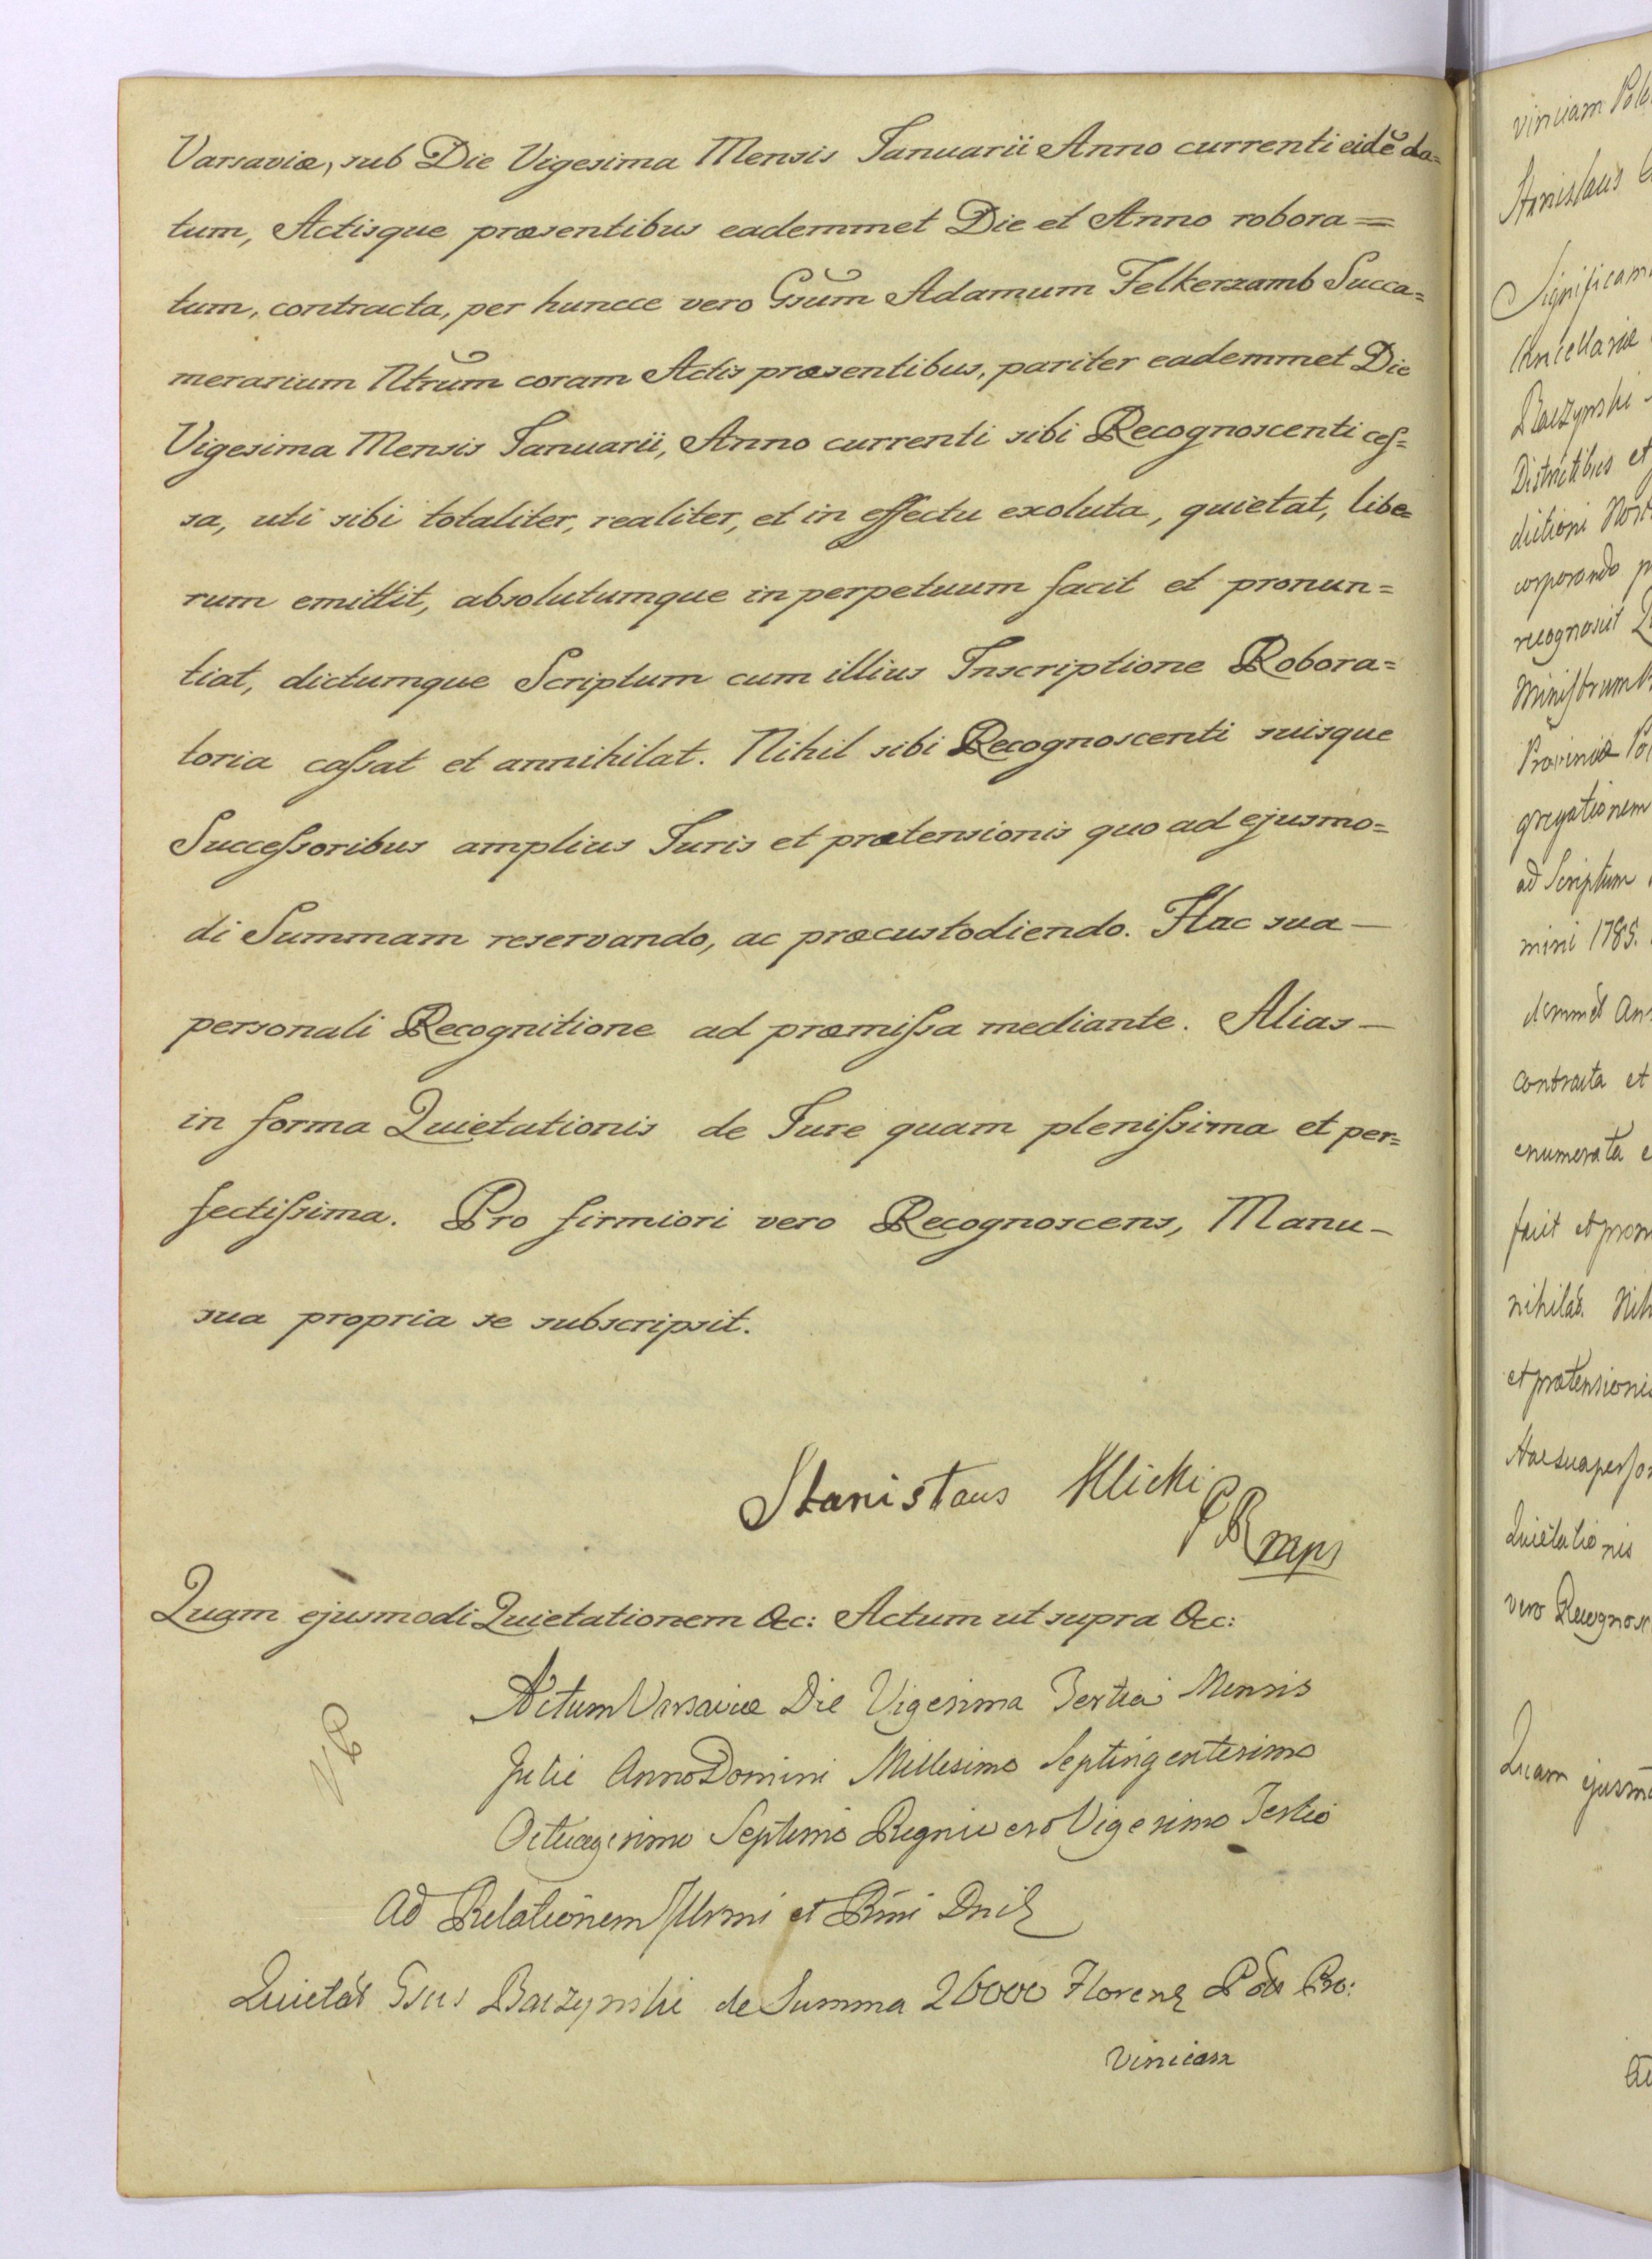 Varsaviæ, sub Die Vigesima Mensis Januarii Anno currenti eidē da=
tum, Actisque præsentibus eademmet Die et Anno robora=
tum, contracta, per huncce vero Gsum Adamum Felkerzamb Succa=
merarium Ntrum coram Actis præsentibus, pariter eademmet Die
Vigesima Mensis Januarii, Anno currenti sibi Recognoscenti ceſ=
sa, uti sibi totaliter, realiter, et in effectu exoluta, quietat, libe=
rum emittit, absolutumque in perpetuum facit et pronun=
tiat, dictumque Scriptum cum illius Inscriptione Robora=
toria caſsat et annihilat. Nihil sibi Recognoscenti suisque
Succeſsoribus amplius Juris et prætensionis quo ad ejusmo=
di Summam reservando, ac præcustodiendo. Hac sua —
personali Recognitione ad præmiſsa mediante. Alias —
in forma Quietationis de Jure quam pleniſsima et per=
fectiſsima. Pro firmiori vero Recognoscens, Manu —
sua propria se subscripsit.
Stanislaus Klicki
mps
Quam ejusmodi Quietationem &c: Actum ut supra &c:
Actum Varsaviæ Die Vigesima Tertia Mensis
Julii Anno Domini Millesimo Septingentesimo
Octuagesimo Septimo Regni vero Vigesimo Tertio
Ad Relationem Illrmi et Rmi Dni
Quietat Gsus Baczynski de Summa 26000 Floren Pol Pro:
vinciam
vinciam Pol
Stanislaus
Significam
Cancellariæ
Baczynski
Districtibus et
dictioni Nost
corporando
recognovit
Ministrum
Provinciæ Po
gregationem
ad Scriptum
mini 1785.
demmet An
contracta et
enumerata
facit et pron
nihilat. Nih
et prætensionis
Hac sua perso
Quietationis
vero Recognos
Quam ejusm